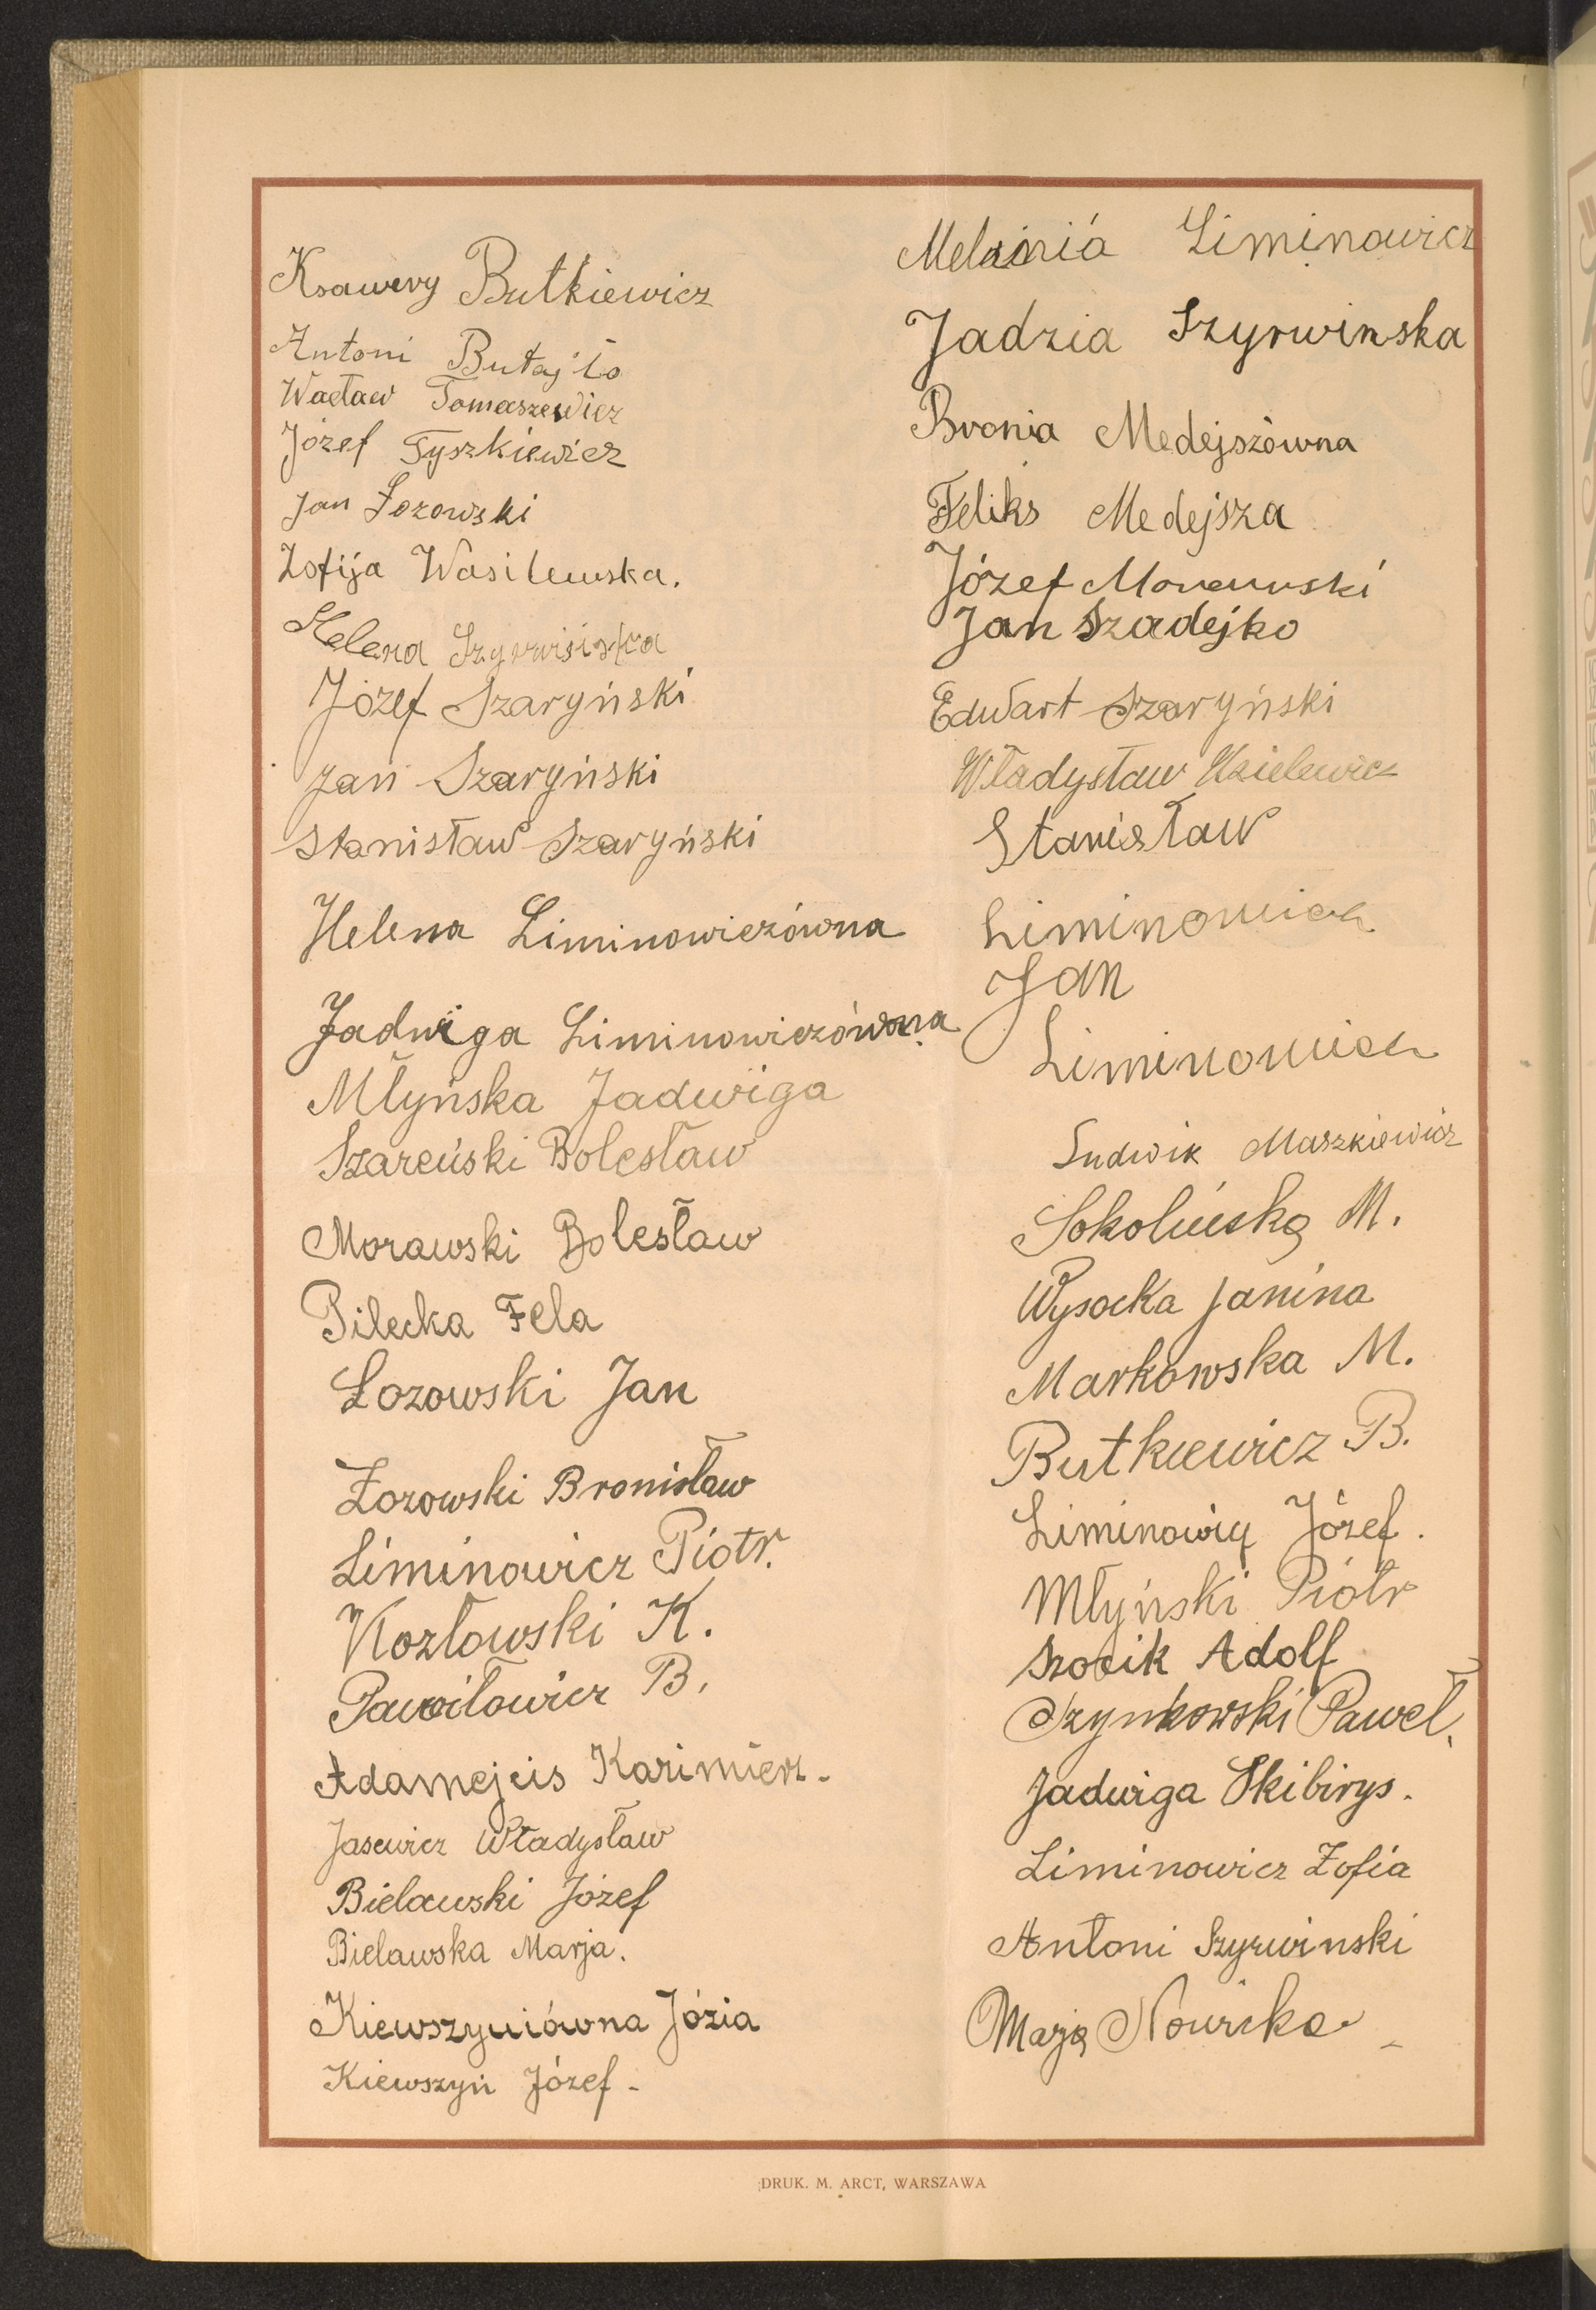 Ksawery Butkiewicz
Antoni Butajło
Wacław Tomaszewicz
Józef Tyszkiewicz
Jan Łozowski
Zofija Wasilewska.
Helena
Józef Szaryński
Jan Szaryński
Stanisław Szaryński
Helena Liminowiczówna
Jadwiga Liminowiczówna
Młyńska Jadwiga
Szareński Bolesław
Morawski Bolesław
Pilecka Fela
Łozowski Jan
Łozowski Bronisław
Liminowicz Piotr.
Kozłowski K.
Pawiłowicz B.
Adamejcis Kazimierz.
Jasewicz Władysław
Bielawski Józef
Bielawska Marja.
Kiewszyniówna Józia
Kiewszyń Józef -
Melania Liminowicz
Jadzia Szyrwinska
Bronia Medejszówna
Feliks Medejsza
Józef Morawski
Jan Szadejko
Edwart Szaryński
Władysław
Stanisław
Liminowicz
Jan
Liminowicz
Ludwik Maszkiewicz
Sokolińska M.
Wysocka Janina
Markowska M.
Butkiewicz B.
Liminowicz Józef.
Młyński Piotr
Szocik Adolf
Szynkowski Paweł.
Jadwiga Skibirys.
Liminowicz Zofia
Antoni Szyrwinski
Marja Nowicka
DRUK. M. ARCT, WARSZAWA